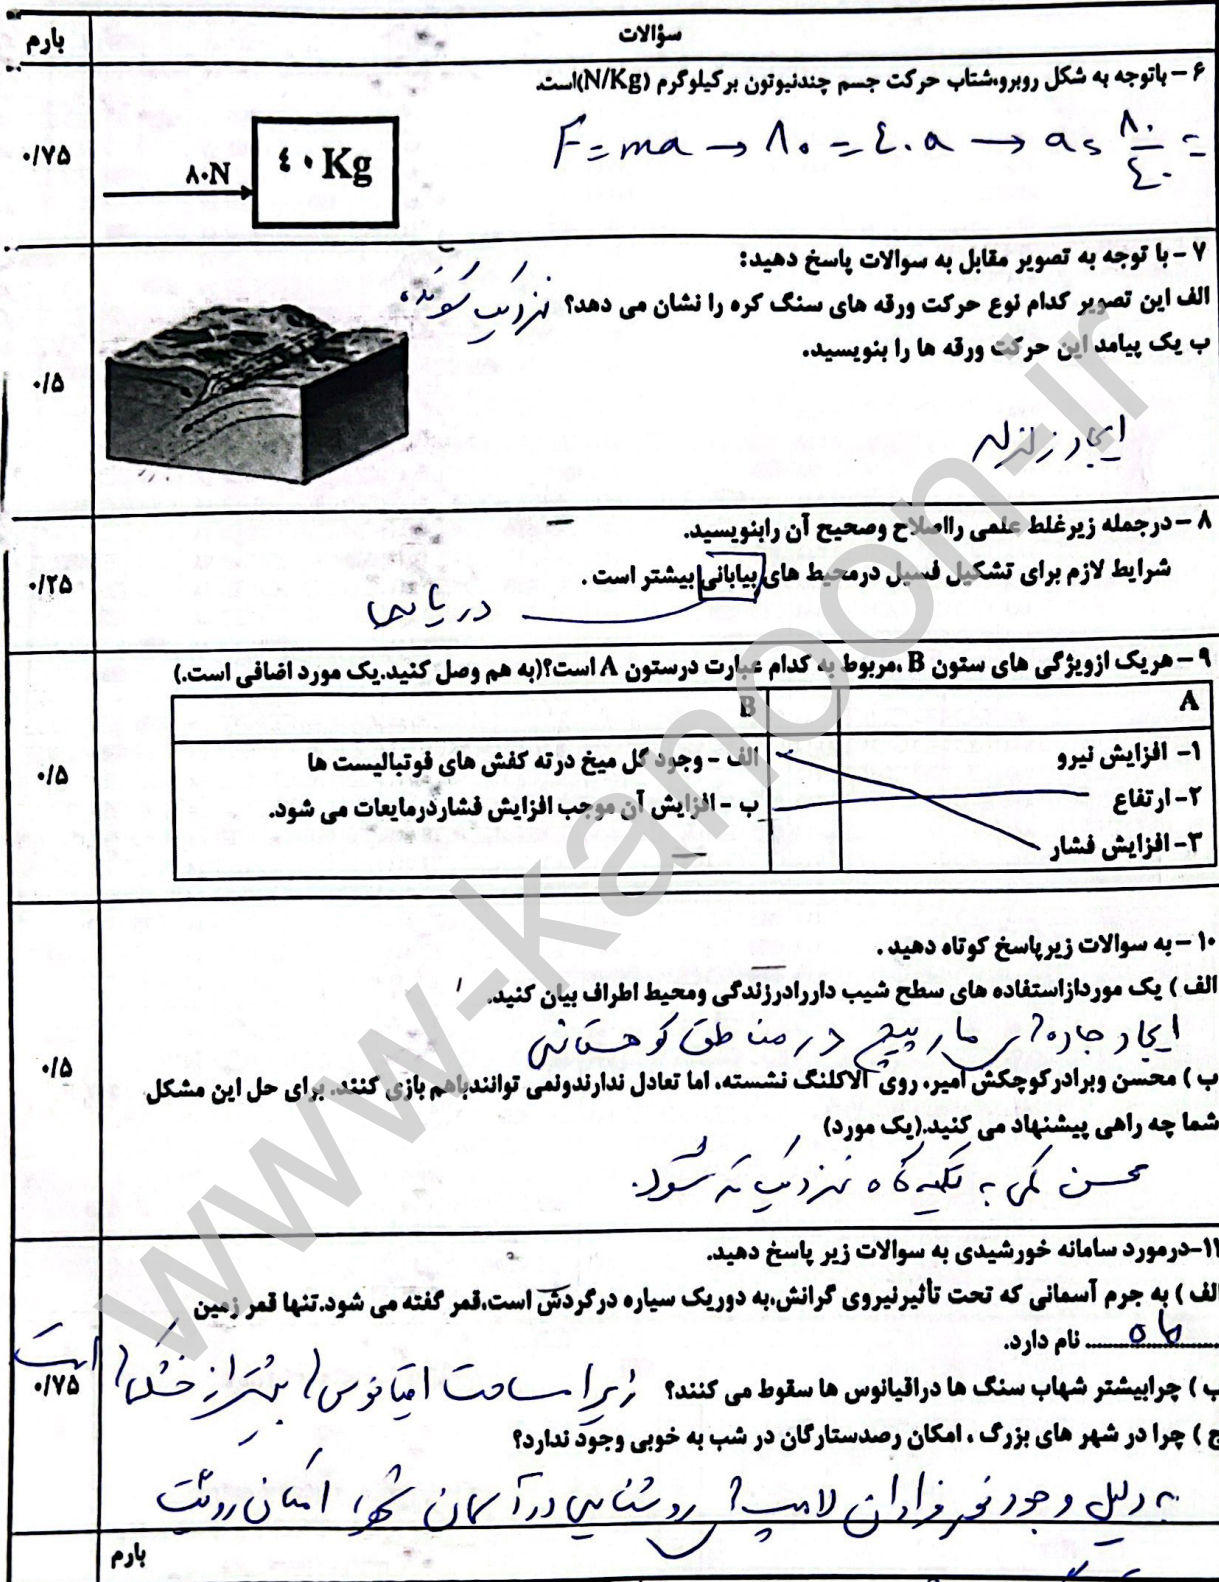 سؤالات
بارم
۶ – باتوجه به شکل روبرو،شتاب حرکت جسم چندنیوتون برکیلوگرم (N/Kg)است.
F = ma → ۸۰ = ٤٠a → a = ۸۰/٤٠ =
٤٠ Kg
۸۰N
۰/۷۵
۷ – با توجه به تصویر مقابل به سوالات پاسخ دهید:
الف این تصویر کدام نوع حرکت ورقه های سنگ کره را نشان می دهد؟ نزدیک شونده
ب یک پیامد این حرکت ورقه ها را بنویسید.
ایجاد زلزله
۰/۵
۸ – درجمله زیرغلط علمی رااصلاح وصحیح آن رابنویسید.
شرایط لازم برای تشکیل فسیل درمحیط های بیابانی بیشتر است .
دریاها
۰/۲۵
۹ – هریک ازویژگی های ستون B ،مربوط به کدام عبارت درستون A است؟(به هم وصل کنید.یک مورد اضافی است.)
A
B
۱- افزایش نیرو
الف - وجود گل میخ درته کفش های فوتبالیست ها
۲- ارتفاع
ب - افزایش آن موجب افزایش فشاردرمایعات می شود.
۳- افزایش فشار
۰/۵
۱۰ – به سوالات زیرپاسخ کوتاه دهید .
الف ) یک موردازاستفاده های سطح شیب داررادرزندگی ومحیط اطراف بیان کنید.
ایجاد جاده های مارپیچ در مناطق کوهستانی
ب ) محسن وبرادرکوچکش امیر، روی الاکلنگ نشسته، اما تعادل ندارندونمی توانندباهم بازی کنند. برای حل این مشکل
شما چه راهی پیشنهاد می کنید.(یک مورد)
محسن کمی به تکیه گاه نزدیک تر شود.
۰/۵
۱۱-درمورد سامانه خورشیدی به سوالات زیر پاسخ دهید.
الف ) به جرم آسمانی که تحت تأثیرنیروی گرانش،به دوریک سیاره درگردش است،قمر گفته می شود.تنها قمر زمین
ماه نام دارد.
ب ) چرابیشتر شهاب سنگ ها دراقیانوس ها سقوط می کنند؟ زیرا مساحت اقیانوس ها بیشتر از خشکی ها است
۰/۷۵
ج ) چرا در شهر های بزرگ ، امکان رصدستارگان در شب به خوبی وجود ندارد؟
به دلیل وجود نور فراوان لامپ های روشنایی در آسمان شهر، امکان رویت
بارم
www-kanoon-ir